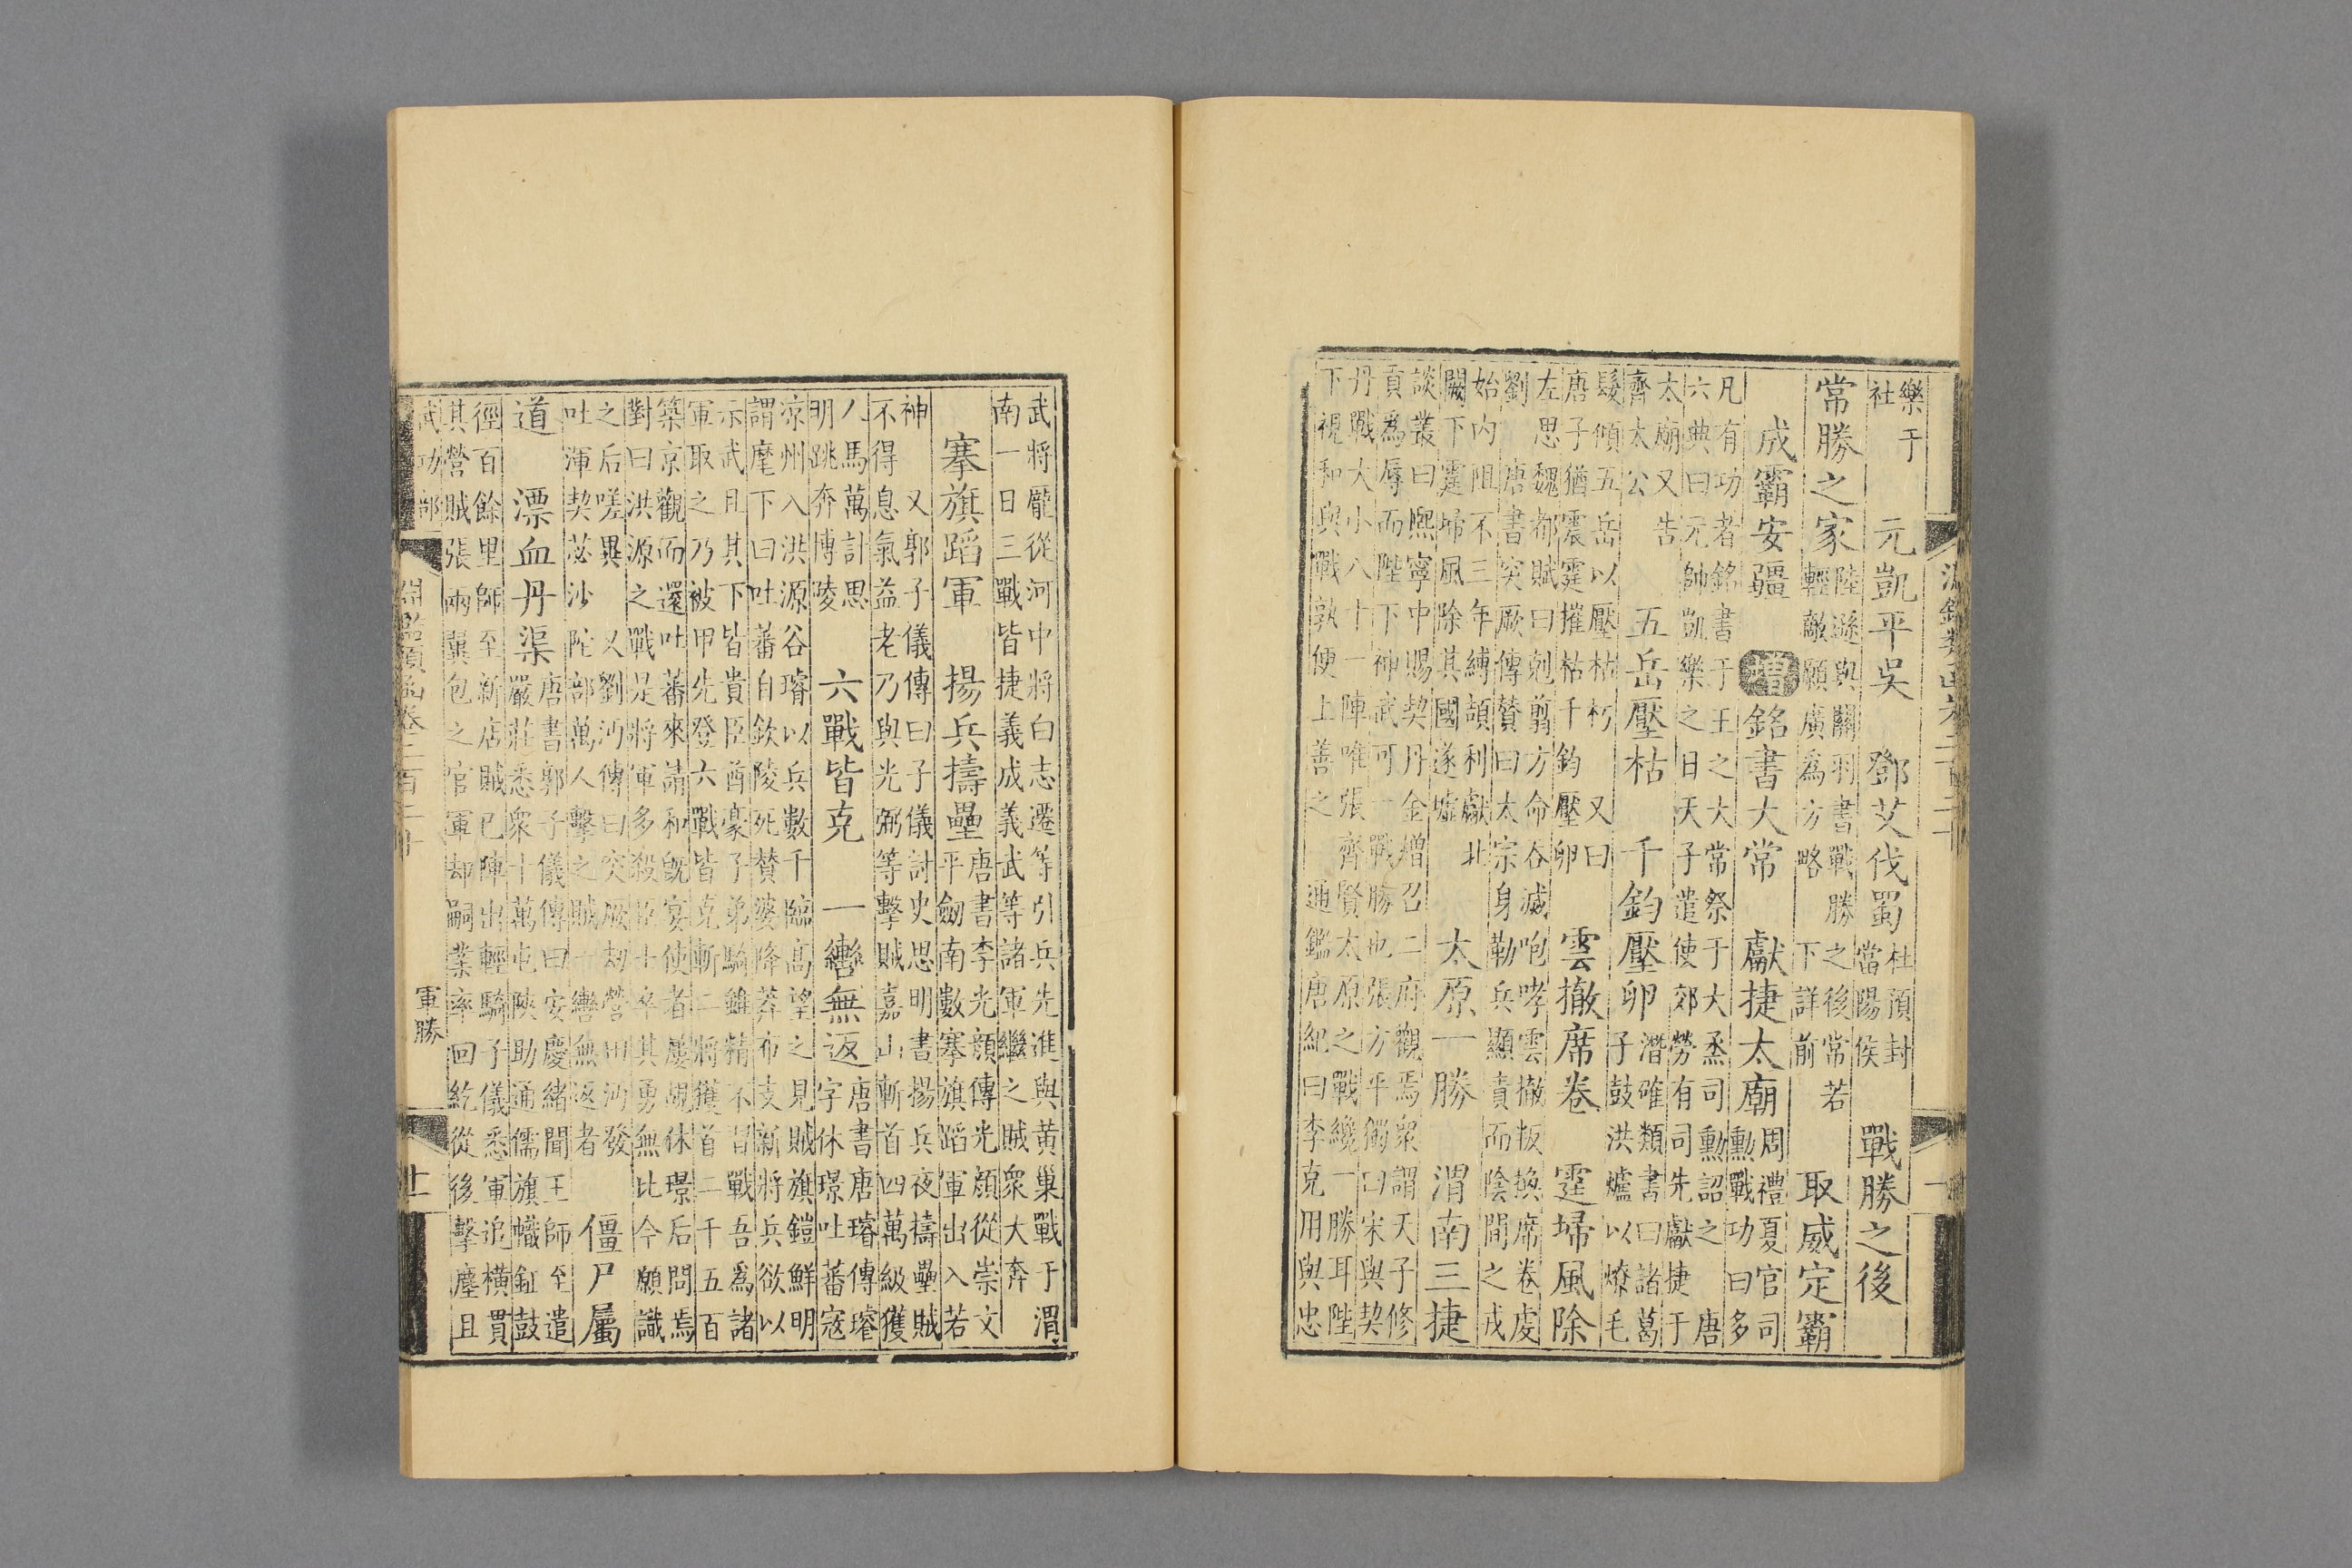 樂于社 元凱平吳 鄧艾伐蜀 杜預封當陽侯 戰勝之後
常勝之家 陸遜與關羽書戰勝之後常若輕敵願廣為方略下詳前 取威定霸
成霸安疆 增 銘書大常 獻捷太廟 周禮夏官司勳戰功曰多
凡有功者銘書于王之大常祭于大烝司勳詔之 唐六典曰元帥凱樂之日天子遣使郊勞有司先獻捷于
太廟又告齊太公 五岳壓枯 千鈞壓卵 潛確類書曰諸葛子鼓洪爐以燎毛
髮傾五岳以壓枯朽 又曰唐子猶震霆摧枯千鈞壓卵 雲撤席卷 霆埽風除
左思魏都賦曰剋翦方命吞滅咆哮雲撤叛換席卷虔劉 唐書突厥傳贊曰太宗身勒兵顯責而陰間之戎
始內阻不三年縛頡利獻北闕下霆埽風除其國遂墟 太原一勝 渭南三捷
談叢曰熙寧中賜契丹金繒召二府觀焉眾謂天子修貢為辱而陛下神武可一戰勝也張方平獨曰宋與契
丹戰大小八十一陣唯張齊賢太原之戰纔一勝耳陛下視和與戰孰便上善之 通鑑唐紀曰李克用與忠
武將龐從河中將白志遷等引兵先進與黃巢戰于渭南一日三戰皆捷義成義武等諸軍繼之賊眾大奔
搴旗蹈軍 揚兵擣壘 唐書李光顏傳光顏從崇文平劒南數搴旗蹈軍出入若
神 又郭子儀傳曰子儀討史思明書揚兵夜擣壘賊不得息氣益老乃與光弼等擊賊嘉山斬首四萬級獲
人馬萬計思明跳奔博陵 六戰皆克 一轡無返 唐書唐璿傳璿字休璟吐蕃寇
涼州入洪源谷璿以兵數千臨高望之見賊旗鎧鮮明謂麾下曰吐蕃自欽陵死贊婆降莽布支新將兵欲以
示武且其下皆貴臣酋豪子弟騎雖精不習戰吾為諸軍取之乃被甲先登六戰皆克斬二將獲首二千五百
築京觀而還吐蕃來請和既宴使者屢覘休璟后問焉對曰洪源之戰是將軍多殺臣士卒其勇無比今願識
之后嗟異 又劉沔傳曰突厥劫營田沔發吐渾契苾沙陀部萬人擊之賊一轡無返者 僵尸屬
道 漂血丹渠 唐書郭子儀傳曰安慶緒聞王師至遣嚴莊悉眾十萬屯陝助通儒旗幟鉦鼓
徑百餘里師至新店賊已陣出輕騎子儀悉軍追橫貫其營賊張兩翼包之官軍却嗣業率回紇從後擊塵且
武功部 淵鑑類函卷二百二十 軍勝 十一